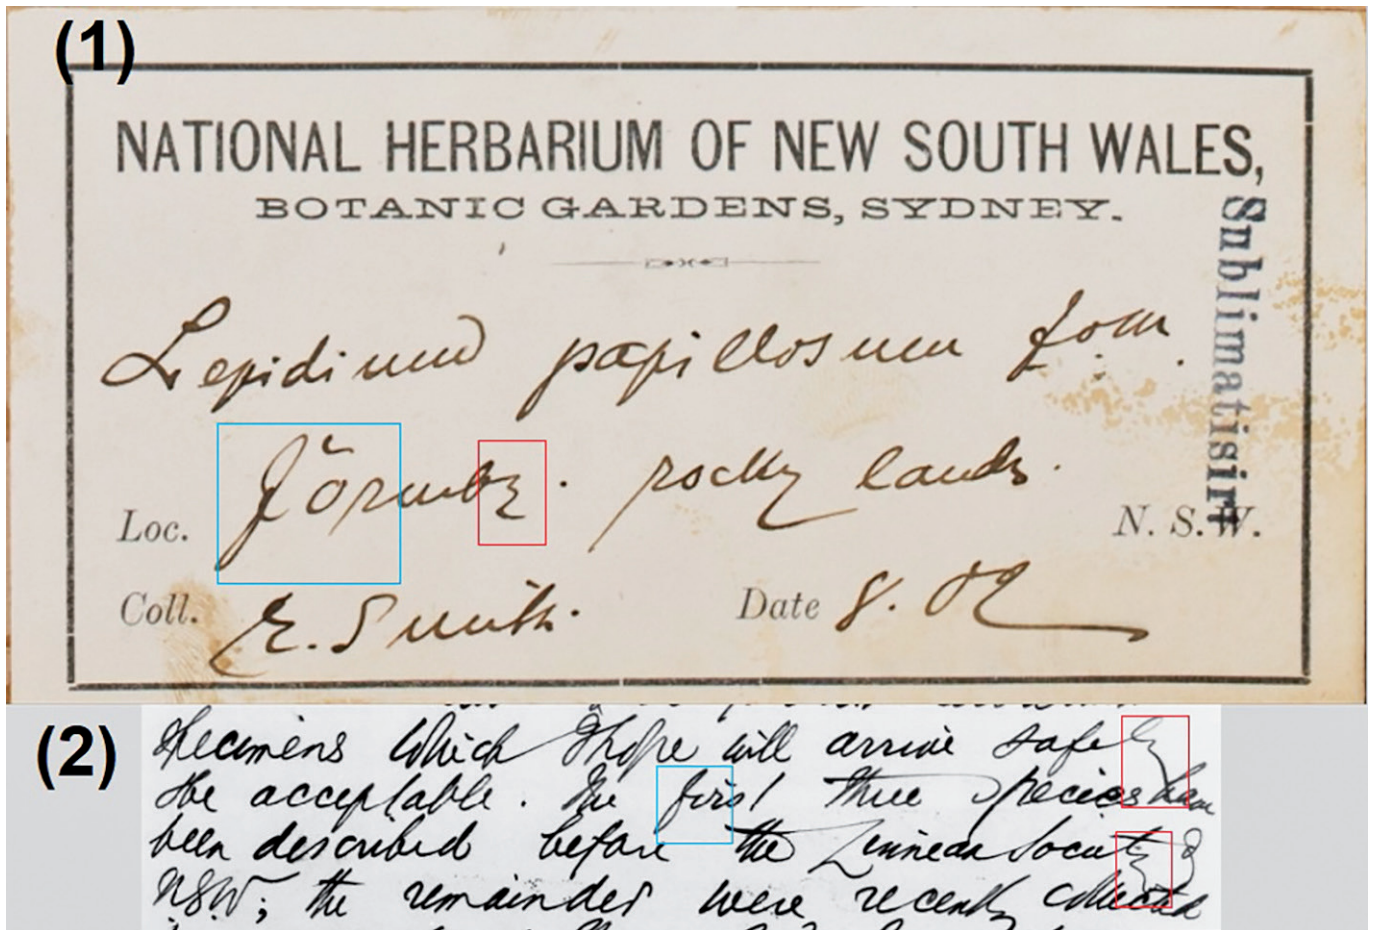 (1)
NATIONAL HERBARIUM OF NEW SOUTH WALES,
BOTANIC GARDENS, SYDNEY.
Lepidium papillosum form.
Loc. Formby. rocky lands. N. S. W.
Coll. E. Smith. Date 8. 02
Sublimatisirt
(2)
Specimens which I hope will arrive safely
be acceptable. The first three species have
been described before the Linnean Society of
NSW; the remainder were recently collected